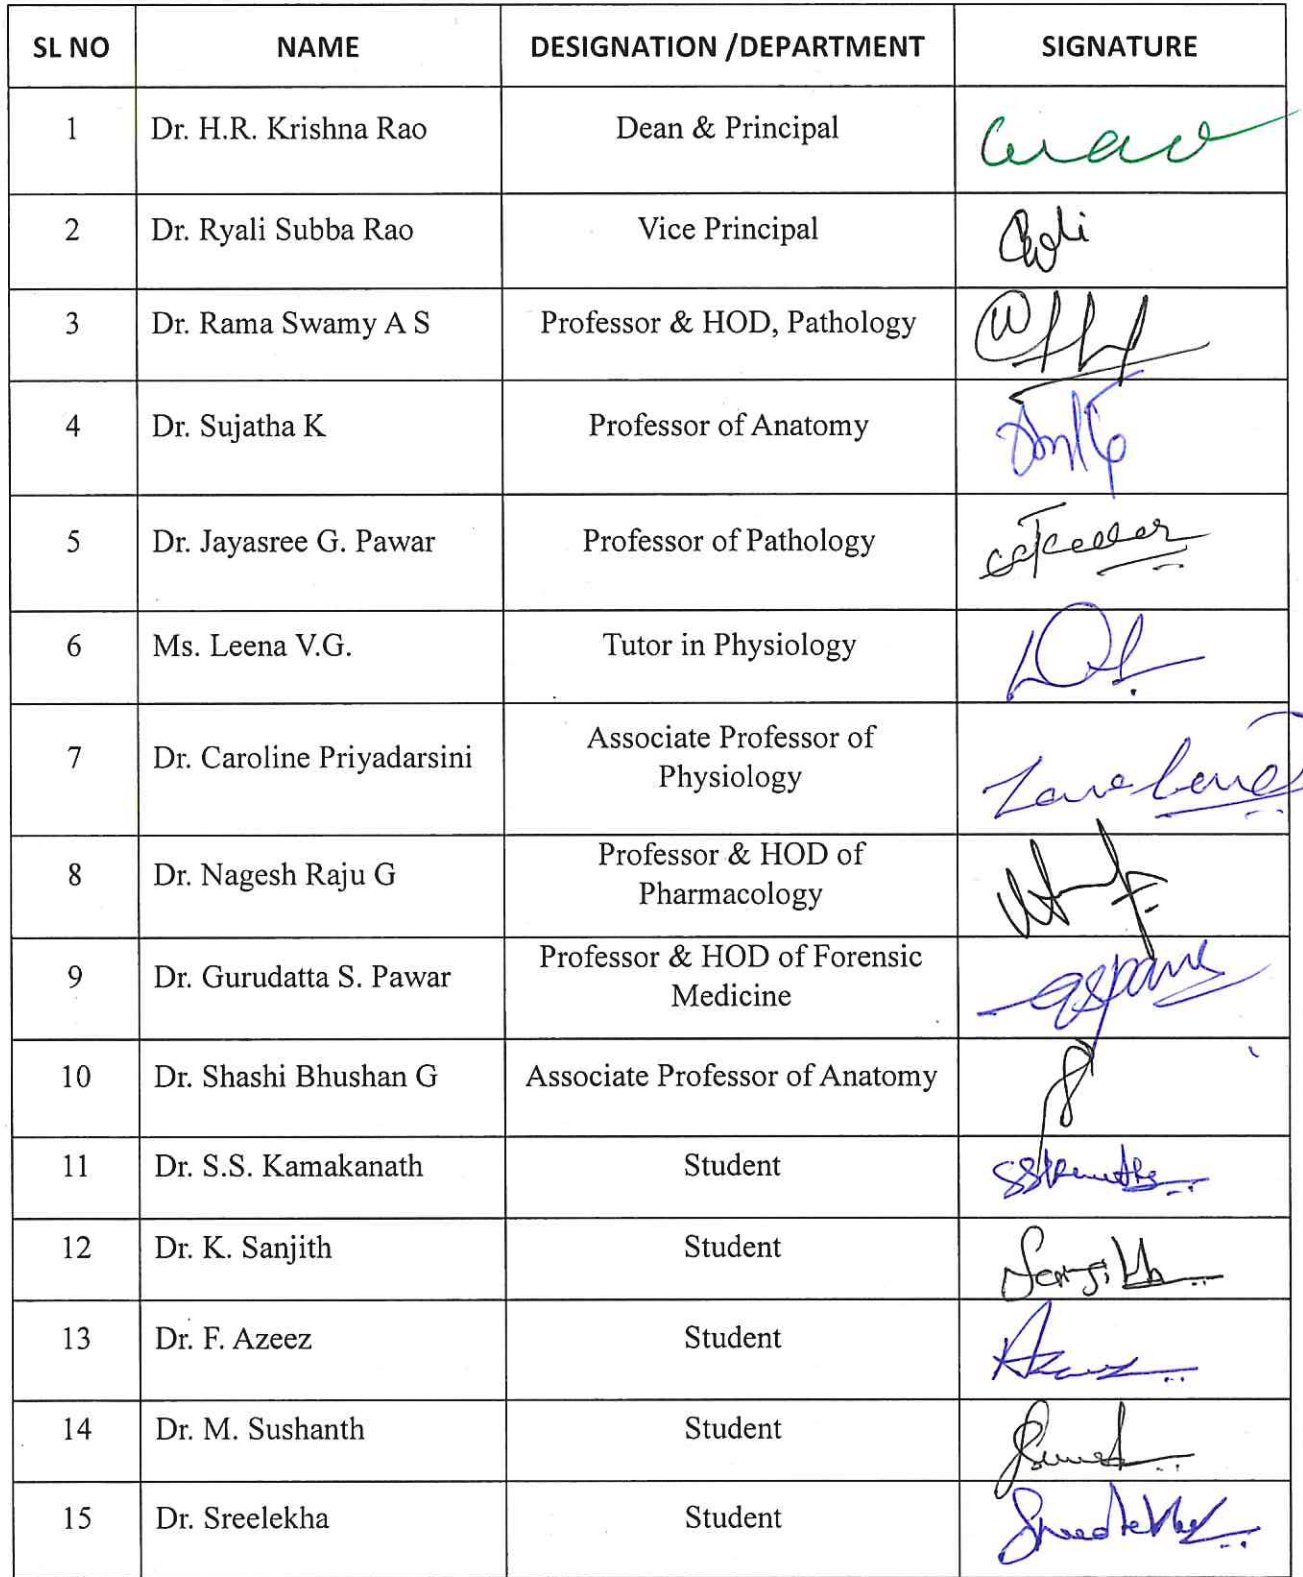 SL NO NAME DESIGNATION /DEPARTMENT SIGNATURE
1 Dr. H.R. Krishna Rao Dean & Principal
2 Dr. Ryali Subba Rao Vice Principal
3 Dr. Rama Swamy A S Professor & HOD, Pathology
4 Dr. Sujatha K Professor of Anatomy
5 Dr. Jayasree G. Pawar Professor of Pathology
6 Ms. Leena V.G. Tutor in Physiology
7 Dr. Caroline Priyadarsini Associate Professor of
Physiology
8 Dr. Nagesh Raju G Professor & HOD of
Pharmacology
9 Dr. Gurudatta S. Pawar Professor & HOD of Forensic
Medicine
10 Dr. Shashi Bhushan G Associate Professor of Anatomy
11 Dr. S.S. Kamakanath Student
12 Dr. K. Sanjith Student
13 Dr. F. Azeez Student
14 Dr. M. Sushanth Student
15 Dr. Sreelekha Student